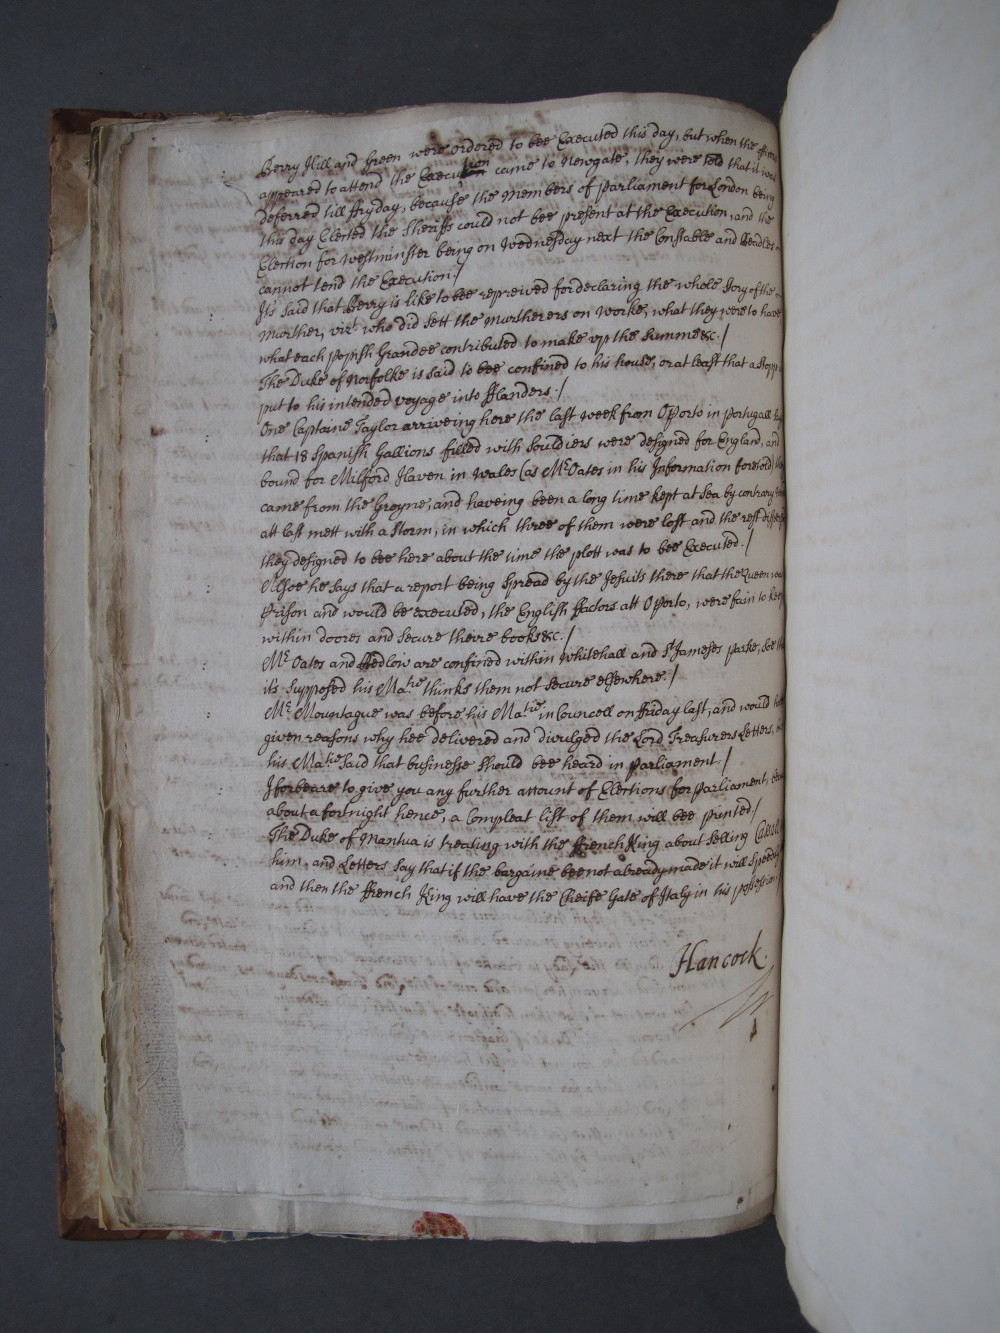 Berry Hill and Green were ordered to bee Executed this day, but when the
appeared to attend the Execution came to Newgate, they were told that it was
deferred till ffryday, because the Members of Parliament for London being
this day Elected the Sheriffs could not bee present at the Execution, and the
Election for Westminster being on Wednesday next the Constable and Beadles
cannot tend the Execution./
It's said that Berry is like to bee repreived for declaring the whole story of the
murther, vizt. who did sett the murtherers on worke, what they were to have
what each Popish Grandee contributed to make up the Summe &c./
The Duke of Norfolke is said to bee confined to his house, or at least that a stopp
put to his intended voyage into Flanders./
One Captaine Taylor arriveing here the last week from OPorto in Portugall
that 18 Spanish Gallions filled with Souldiers were designed for England, and
bound for Milford Haven in Wales (as Mr. Oates in his Information foretold)
came from the Groyne, and haveing been a long time kept at Sea by contrary
att last mett with a Storm, in which three of them were lost and the rest
they designed to bee here about the time the plott was to bee Executed./
Alsoe he says that a report being Spread by the Jesuits there that the Queen was
Prison and would be executed, the English ffactors att OPorto, were fain to keep
within doores and Secure theire books &c./
Mr. Oates and Bedlow are confined within Whitehall and St. Jameses Parke, soe
it's supposed his Matie. thinks them not Secure elsewhere./
Mr. Mountague was before his Matie. in Councell on Friday last, and would
given reasons why hee delivered and divulged the Lord Treasurers Letters,
his Matie said that businesse should bee heard in Parliament./
I forbeare to give you any further account of Elections for Parliament,
about a fortnight hence, a Compleat list of them will bee printed/
The Duke of Mantua is treating with the ffrench King about Selling
him, and Letters Say that if the bargaine bee not already made it will Speedily
and then the ffrench King will have the Cheife Gate of Italy in his possession
Hancock.